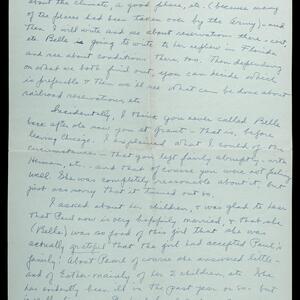 about the climate, a good place, etc. (because many
of the places had been taken over by the Army) - and
then I will write and see about reservations there - cost,
etc. Bella is going to write to her nephew in Florida
and see about conditions there, too. Then depending
on what we both find out, you can decide which
is preferable & then we'll see what can be done about
railroad reservations, etc.
Incidentally, I think you never called Bella
back after she saw you at Grant - that is, before
leaving Chicago. I explained what I could of the
circumstances - that you left fairly abruptly - with
Herman, etc. - and that of course you were not feeling
well. She was completely reasonable about it, but
just was sorry that it turned out so.
I asked about her children, & was glad to hear
that Paul now is very happily married, & that she
(Bella) was so fond of this girl that she was
actually grateful that the girl had accepted Paul's
family! About Pearl of course she answered little -
and of Esther - mainly of her 2 children, etc. She
has evidently been ill in the past year or so - but